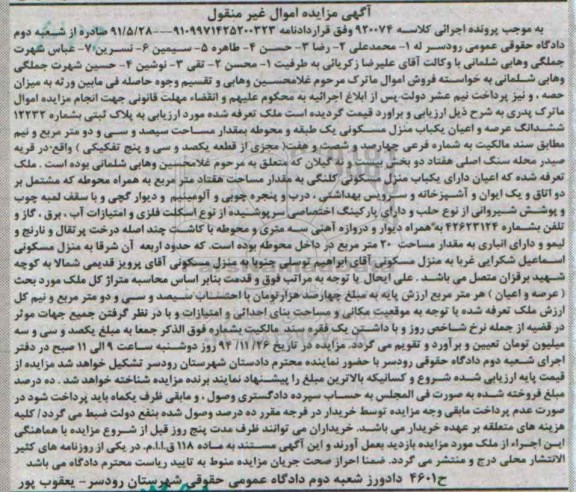 آگهی مزایده اموال غیر منقول
به موجب پرونده اجرائی کلاسه ۹۲۰۰۷۴ وفق قراردادنامه ۹۱۰۹۹۷۱۴۲۵۲۰۰۳۲۳---۹۱/۵/۲۸ صادره از شعبه دوم
دادگاه حقوقی عمومی رودسر له ۱- محمدعلی ۲- رضا ۳- حسن ۴- طاهره ۵- سیمین ۶- نسرین ۷- عباس شهرت
جملگی وهابی شلمانی با وکالت آقای علیرضا زکریائی به طرفیت ۱- محسن ۲- تقی ۳- نوشین ۴- حسین شهرت جملگی
وهابی شلمانی به خواسته فروش اموال ماترک مرحوم غلامحسین وهابی و تقسیم وجوه حاصله فی مابین ورثه به میزان
حصه ، و نیز پرداخت نیم عشر دولت پس از ابلاغ اجرائیه به محکوم علیهم و انقضاء مهلت قانونی جهت انجام مزایده اموال
ماترک پدری به شرح ذیل ارزیابی و برآورد قیمت گردیده است ملک تعرفه شده مورد ارزیابی به پلاک ثبتی بشماره ۱۲۲۳۲
ششدانگ عرصه و اعیان یکباب منزل مسکونی یک طبقه و محوطه بمقدار مساحت سیصد و سی و دو متر مربع و نیم
مطابق سند مالکیت به شماره فرعی چهارصد و شصت و هفت( مجزی از قطعه یکصد و سی و پنج تفکیکی ) واقع در قریه
صیدر محله سنگ اصلی هفتاد دو بخش گیلان که متعلق به مرحوم غلامحسین وهابی شلمانی بوده است . ملک
تعرفه شده که اعیان دارای یکباب منزل مسکونی کلنگی به مقدار مساحت هفتاد متر مربع به همراه محوطه که مشتمل بر
دو اتاق و یک ایوان و آشپزخانه و سرویس بهداشتی ، درب و پنجره چوبی و آلومینیم و دیوار گچی و با سقف لمبه چوب
و پوشش شیروانی از نوع حلب و دارای پارکینگ اختصاصی سرپوشیده از نوع اسکلت فلزی و امتیازات آب ، برق ، گاز و
تلفن بشماره ۴۲۶۲۳۱۲۴ به همراه دیوار و دروازه آهنی سه متری و محوطه با کاشت چند اصله درخت پرتقال و نارنج و
لیمو و دارای انباری به مقدار مساحت ۲۰ متر مربع در داخل محوطه بوده است. که حدود اربعه آن شرقا به منزل مسکونی
اسماعیل شکرایی غربا به منزل مسکونی آقای ابراهیم توسلی جنوبا به منزل مسکونی آقای پرویز قدیمی شمالا به کوچه
شهید برقزان متصل می باشد. علی ایحال با توجه به مراتب فوق و قدمت بنابر اساس محاسبه متراژ کل ملک مورد بحث
( عرصه و اعیان ) هر متر مربع ارزش پایه به مبلغ چهارصد هزارتومان با احتساب سیصد و سی و دو متر مربع و نیم کل
ارزش ملک تعرفه شده با توجه به موقعیت مکانی و مساحت بنای احداثی و امتیازات و با در نظر گرفتن جمیع جهات موثر
در قضیه از جمله نرخ شاخص روز و با داشتن یک فقره سند مالکیت بشماره فوق الذکر جمعا به مبلغ یکصد و سی و سه
میلیون تومان تعیین و برآورد و تقویم می گردد. مزایده در تاریخ ۹۴/۱۱/۲۶ روز دوشنبه ساعت ۹ الی ۱۱ صبح در دفتر
اجرای شعبه دوم دادگاه حقوقی رودسر با حضور نماینده محترم دادستان شهرستان رودسر تشکیل خواهد شد مزایده از
قیمت پایه ارزیابی شده شروع و کسانیکه بالاترین مبلغ را پیشنهاد نمایند برنده مزایده شناخته خواهد شد . ده درصد
مبلغ فروخته شده به صورت فی المجلس به حساب سپرده دادگستری وصول ، و مابقی ظرف یکماه باید پرداخت شود در
صورت عدم پرداخت مابقی وجه مزایده توسط خریدار در فرجه مقرر ده درصد وصول شده بنفع دولت ضبط می گردد/ کلیه
هزینه های متعلقه بر عهده خریدار می باشد. خریداران می توانند ظرف مدت پنج روز قبل از شروع مزایده با هماهنگی
این اجراء از ملک مورد مزایده بازدید بعمل آورند و این آگهی مستند به ماده ۱۱۸ ق.ا.ا.م. در یکی از روزنامه های کثیر
الانتشار محلی درج و منتشر می گردد. ضمنا احراز صحت جریان مزایده منوط به تایید ریاست محترم دادگاه می باشد
ح۴۶۰۱ دادورز شعبه دوم دادگاه عمومی حقوقی شهرستان رودسر- یعقوب پور